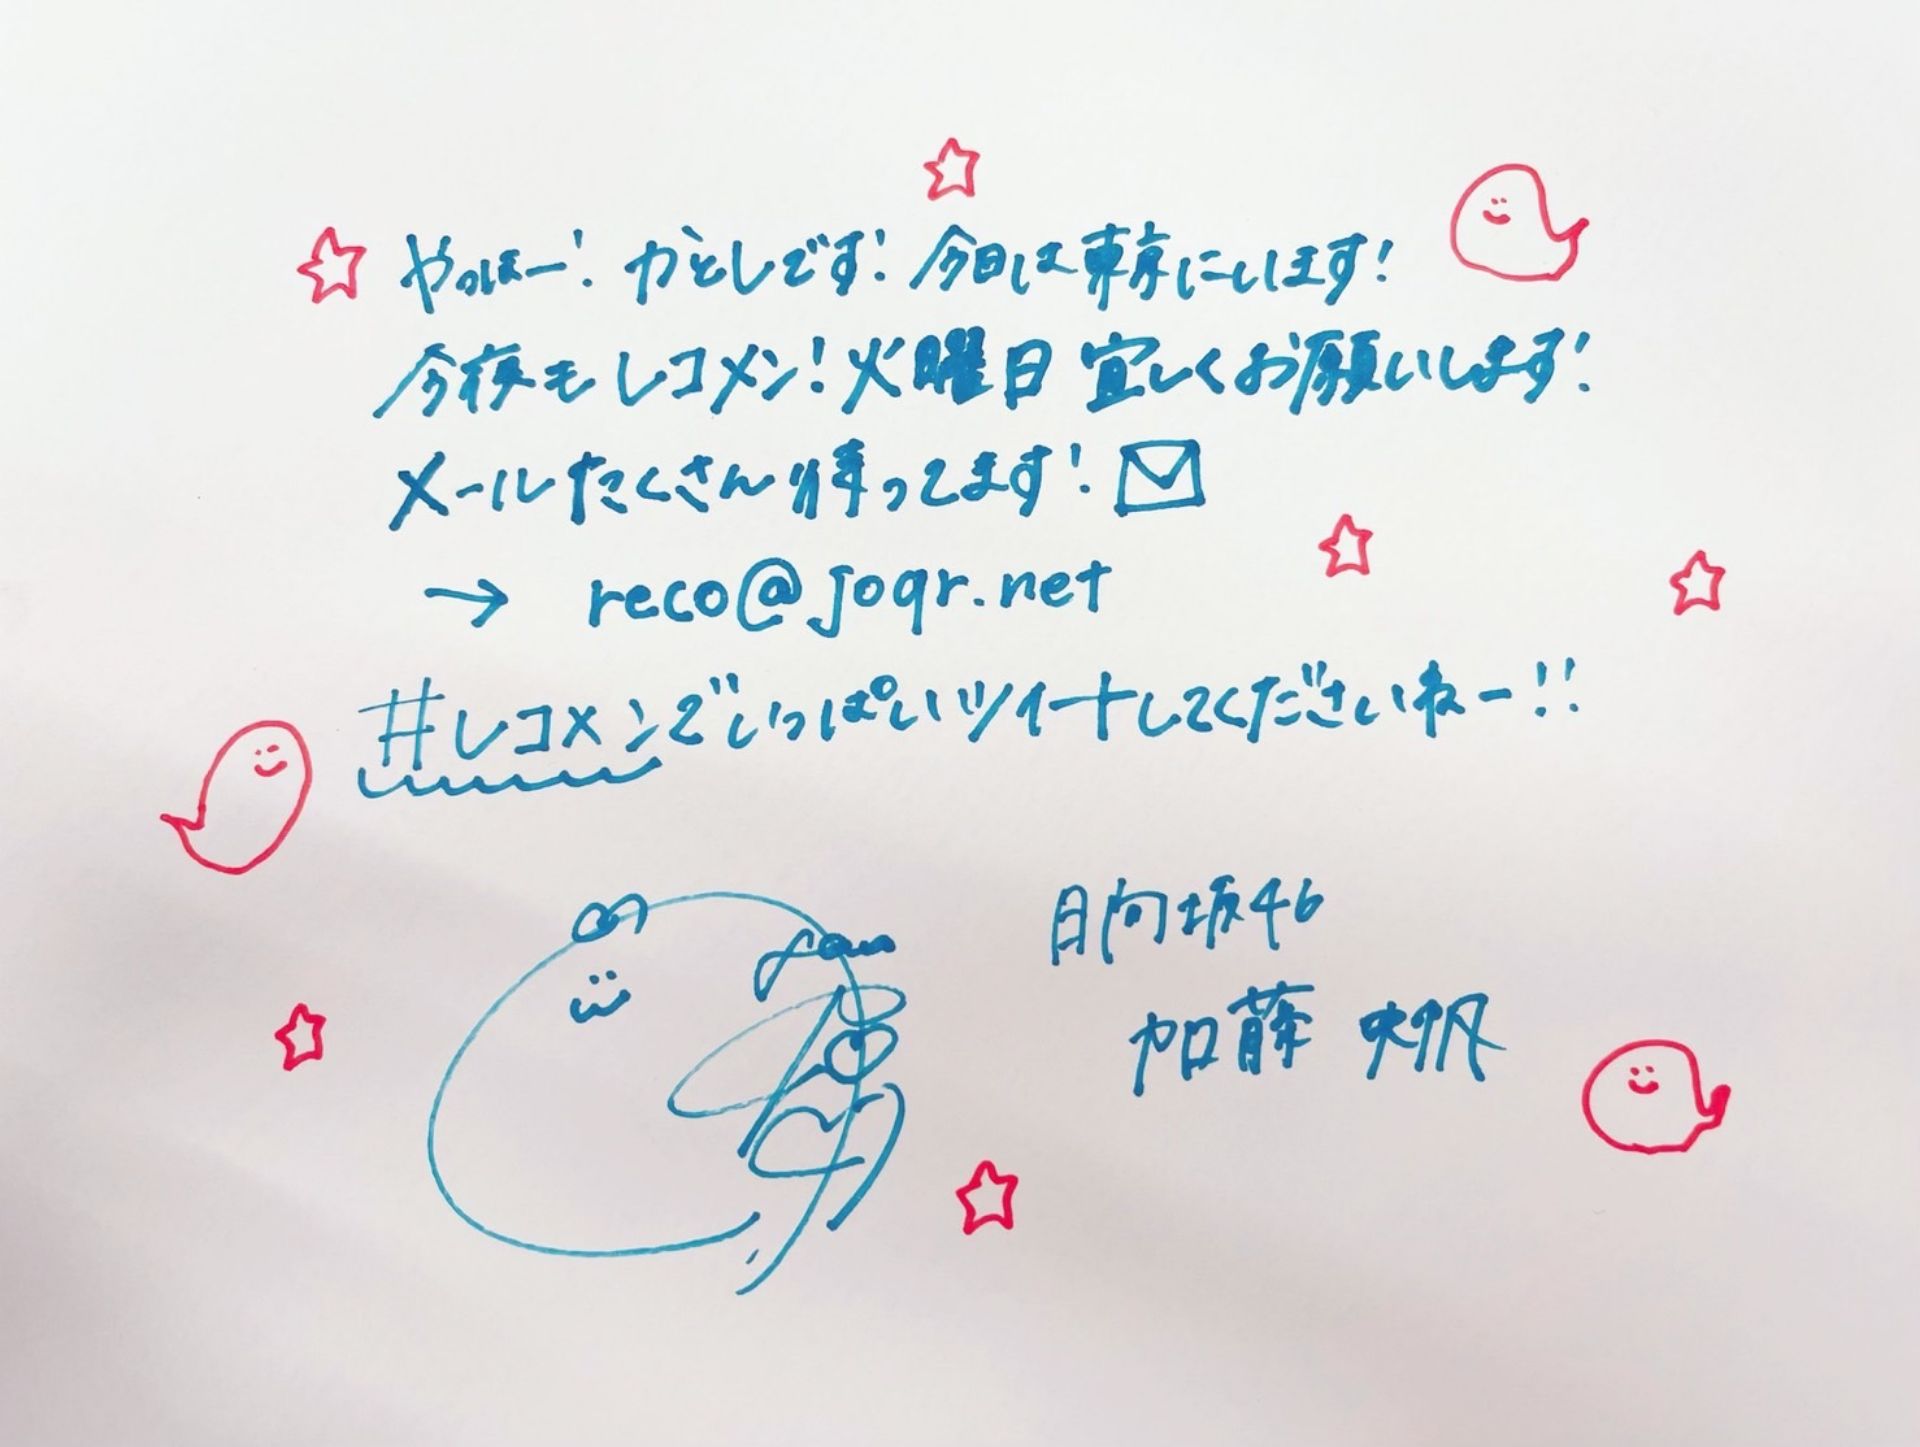 やっほー! かとしです! 今日は東京にいます!
今夜もレコメン!火曜日 宜しくお願いします!
メールたくさん待ってます!
→ reco@joqr.net
#レコメンでいっぱいツイートしてくださいねー!!
日向坂46
加藤 史帆